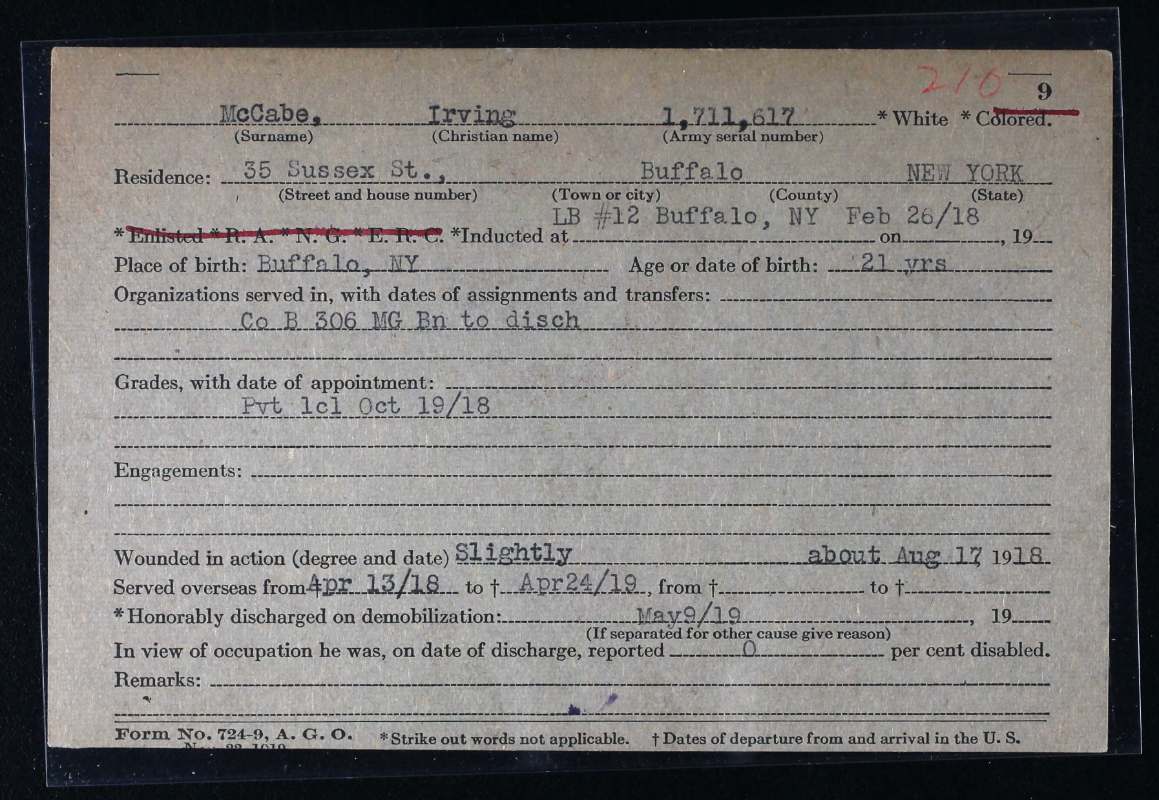 210
9
McCabe, Irving 1,711,617 * White * Colored.
(Surname) (Christian name) (Army serial number)
Residence: 35 Sussex St., Buffalo NEW YORK
(Street and house number) (Town or city) (County) (State)
LB #12 Buffalo, NY Feb 26/18
* Enlisted * R. A. * N. G. * E. R. C. *Inducted at on , 19
Place of birth: Buffalo, NY Age or date of birth: 21 yrs
Organizations served in, with dates of assignments and transfers:
Co B 306 MG Bn to disch
Grades, with date of appointment:
Pvt 1cl Oct 19/18
Engagements:
Wounded in action (degree and date) Slightly about Aug 17, 1918
Served overseas from Apr 13/18 to † Apr24/19, from † to †
* Honorably discharged on demobilization: May9/19 , 19
(If separated for other cause give reason)
In view of occupation he was, on date of discharge, reported 0 per cent disabled.
Remarks:
Form No. 724-9, A. G. O. * Strike out words not applicable. † Dates of departure from and arrival in the U. S.